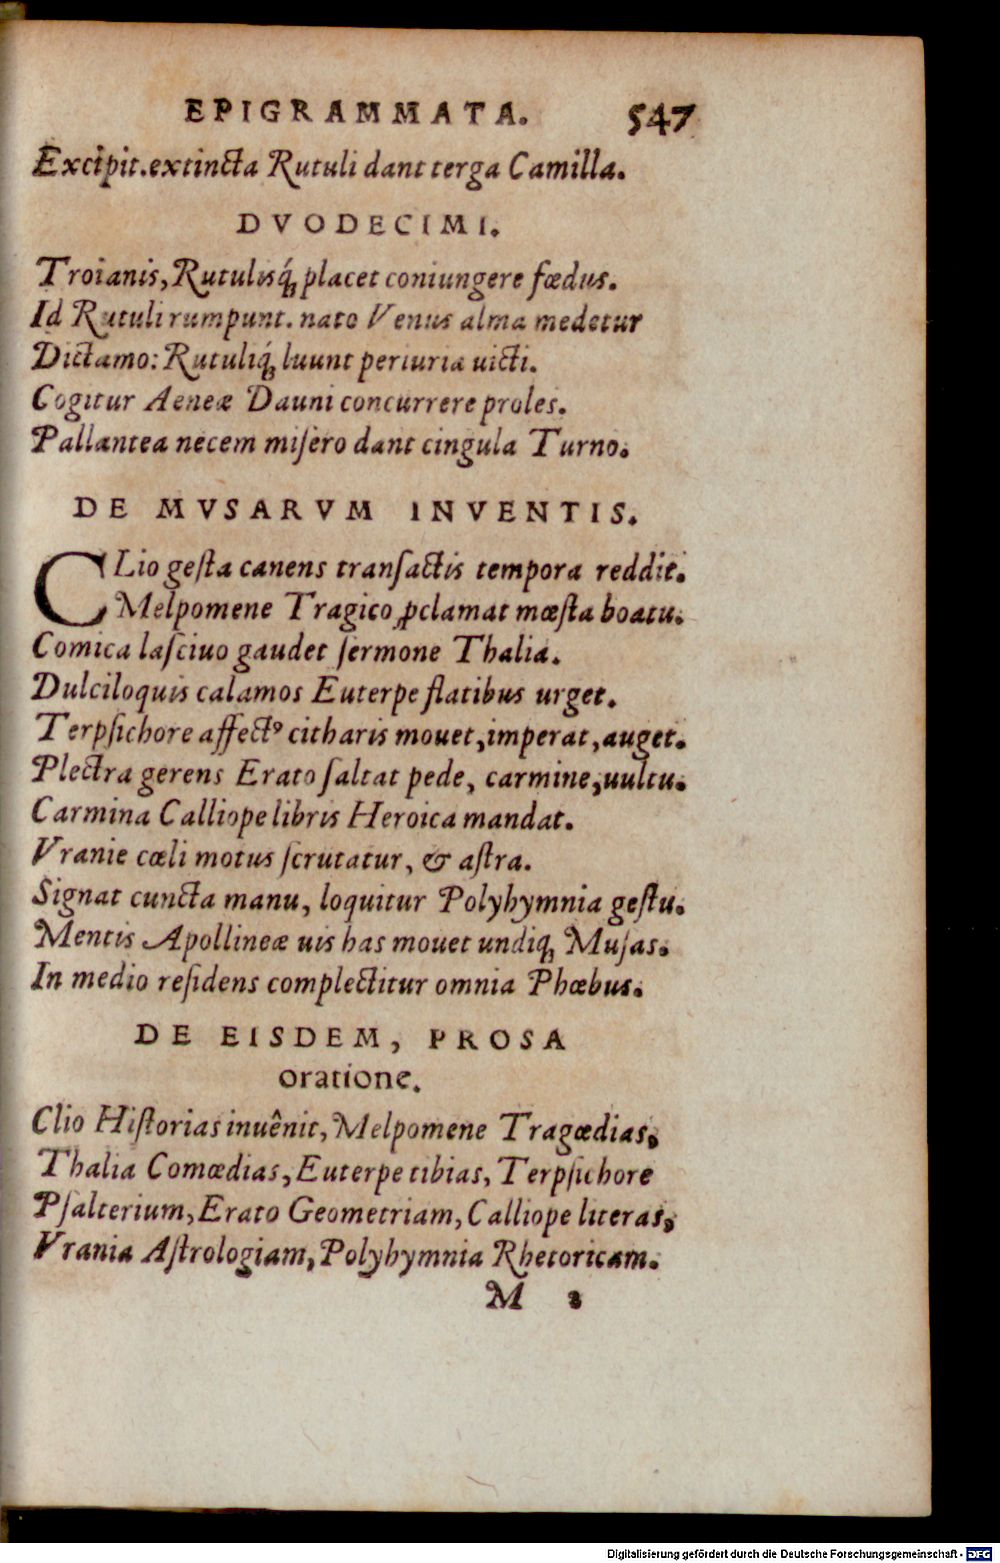 EPIGRAMMATA. 547
Excipit. extincta Rutuli dant terga Camilla.
DVODECIMI.
Troianis, Rutulisq́; placet coniungere fœdus.
Id Rutuli rumpunt. nato Venus alma medetur
Dictamo: Rutuliq́; luunt periuria uicti.
Cogitur Aeneæ Dauni concurrere proles.
Pallantea necem miſero dant cingula Turno.
DE MVSARVM INVENTIS.
CLio geſta canens tranſactis tempora reddit.
Melpomene Tragico ꝓclamat mœſta boatu.
Comica laſciuo gaudet ſermone Thalia.
Dulciloquis calamos Euterpe flatibus urget.
Terpſichore affectꝰ citharis mouet, imperat, auget.
Plectra gerens Erato ſaltat pede, carmine, uultu.
Carmina Calliope libris Heroica mandat.
Vranie cœli motus ſcrutatur, & aſtra.
Signat cuncta manu, loquitur Polyhymnia geſtu.
Mentis Apollineæ uis has mouet undiq; Muſas.
In medio reſidens complectitur omnia Phœbus.
DE EISDEM, PROSA
oratione.
Clio Hiſtorias inuênit, Melpomene Tragœdias,
Thalia Comœdias, Euterpe tibias, Terpſichore
Pſalterium, Erato Geometriam, Calliope literas,
Vrania Aſtrologiam, Polyhymnia Rhetoricam.
M 2
Digitalisierung gefördert durch die Deutsche Forschungsgemeinschaft - DFG